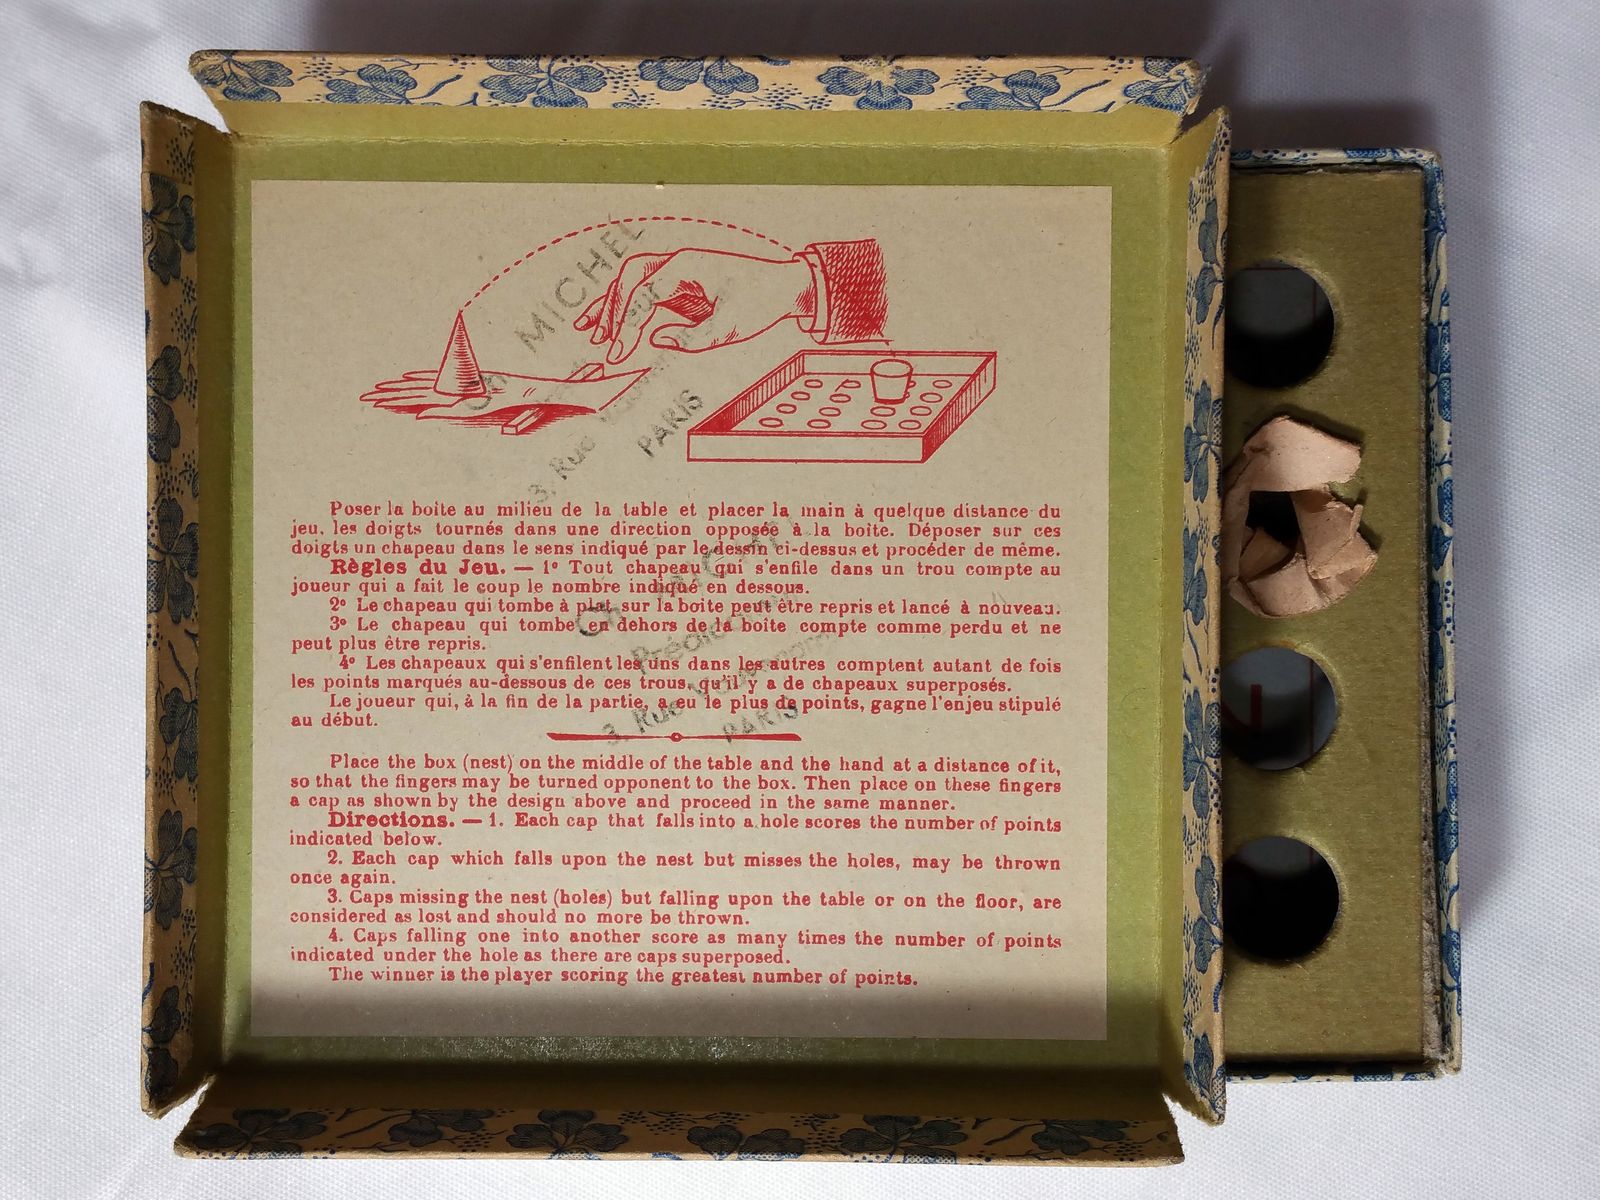 MICHEL
3, Rue
PARIS
Poser la boîte au milieu de la table et placer la main à quelque distance du
jeu, les doigts tournés dans une direction opposée à la boîte. Déposer sur ces
doigts un chapeau dans le sens indiqué par le dessin ci-dessus et procéder de même.
Règles du Jeu. — 1º Tout chapeau qui s'enfile dans un trou compte au
joueur qui a fait le coup le nombre indiqué en dessous.
2º Le chapeau qui tombe à plat sur la boîte peut être repris et lancé à nouveau.
3º Le chapeau qui tombe en dehors de la boîte compte comme perdu et ne
peut plus être repris.
4º Les chapeaux qui s'enfilent les uns dans les autres comptent autant de fois
les points marqués au-dessous de ces trous, qu'il y a de chapeaux superposés.
Le joueur qui, à la fin de la partie, a eu le plus de points, gagne l'enjeu stipulé
au début.
3, Rue
PARIS
Place the box (nest) on the middle of the table and the hand at a distance of it,
so that the fingers may be turned opponent to the box. Then place on these fingers
a cap as shown by the design above and proceed in the same manner.
Directions. — 1. Each cap that falls into a hole scores the number of points
indicated below.
2. Each cap which falls upon the nest but misses the holes, may be thrown
once again.
3. Caps missing the nest (holes) but falling upon the table or on the floor, are
considered as lost and should no more be thrown.
4. Caps falling one into another score as many times the number of points
indicated under the hole as there are caps superposed.
The winner is the player scoring the greatest number of points.